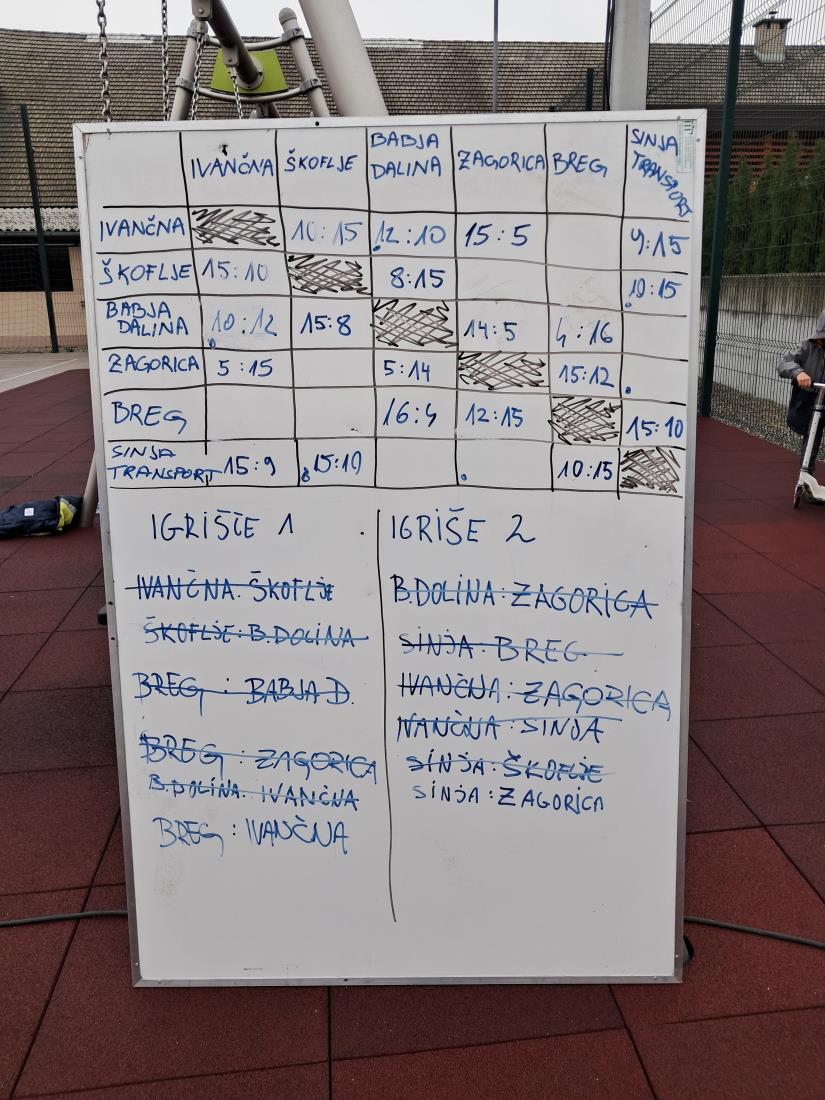 IVANČNA ŠKOFLJE BABJA DALINA ZAGORICA BREG SINJA TRANSPORT
IVANČNA 10:15 12:10 15:5 9:15
ŠKOFLJE 15:10 8:15 10:15
BABJA DALINA 10:12 15:8 14:5 4:16
ZAGORICA 5:15 5:14 15:12
BREG 16:4 12:15 15:10
SINJA TRANSPORT 15:9 15:10 10:15
IGRIŠČE 1
IVANČNA: ŠKOFLJE
ŠKOFLJE: B.DOLINA
BREG : BABJA D.
BREG : ZAGORICA
B.DOLINA: IVANČNA
BREG : IVANČNA
IGRIŠE 2
B.DOLINA: ZAGORICA
SINJA: BREG
IVANČNA: ZAGORICA
IVANČNA: SINJA
SINJA: ŠKOFLJE
SINJA: ZAGORICA